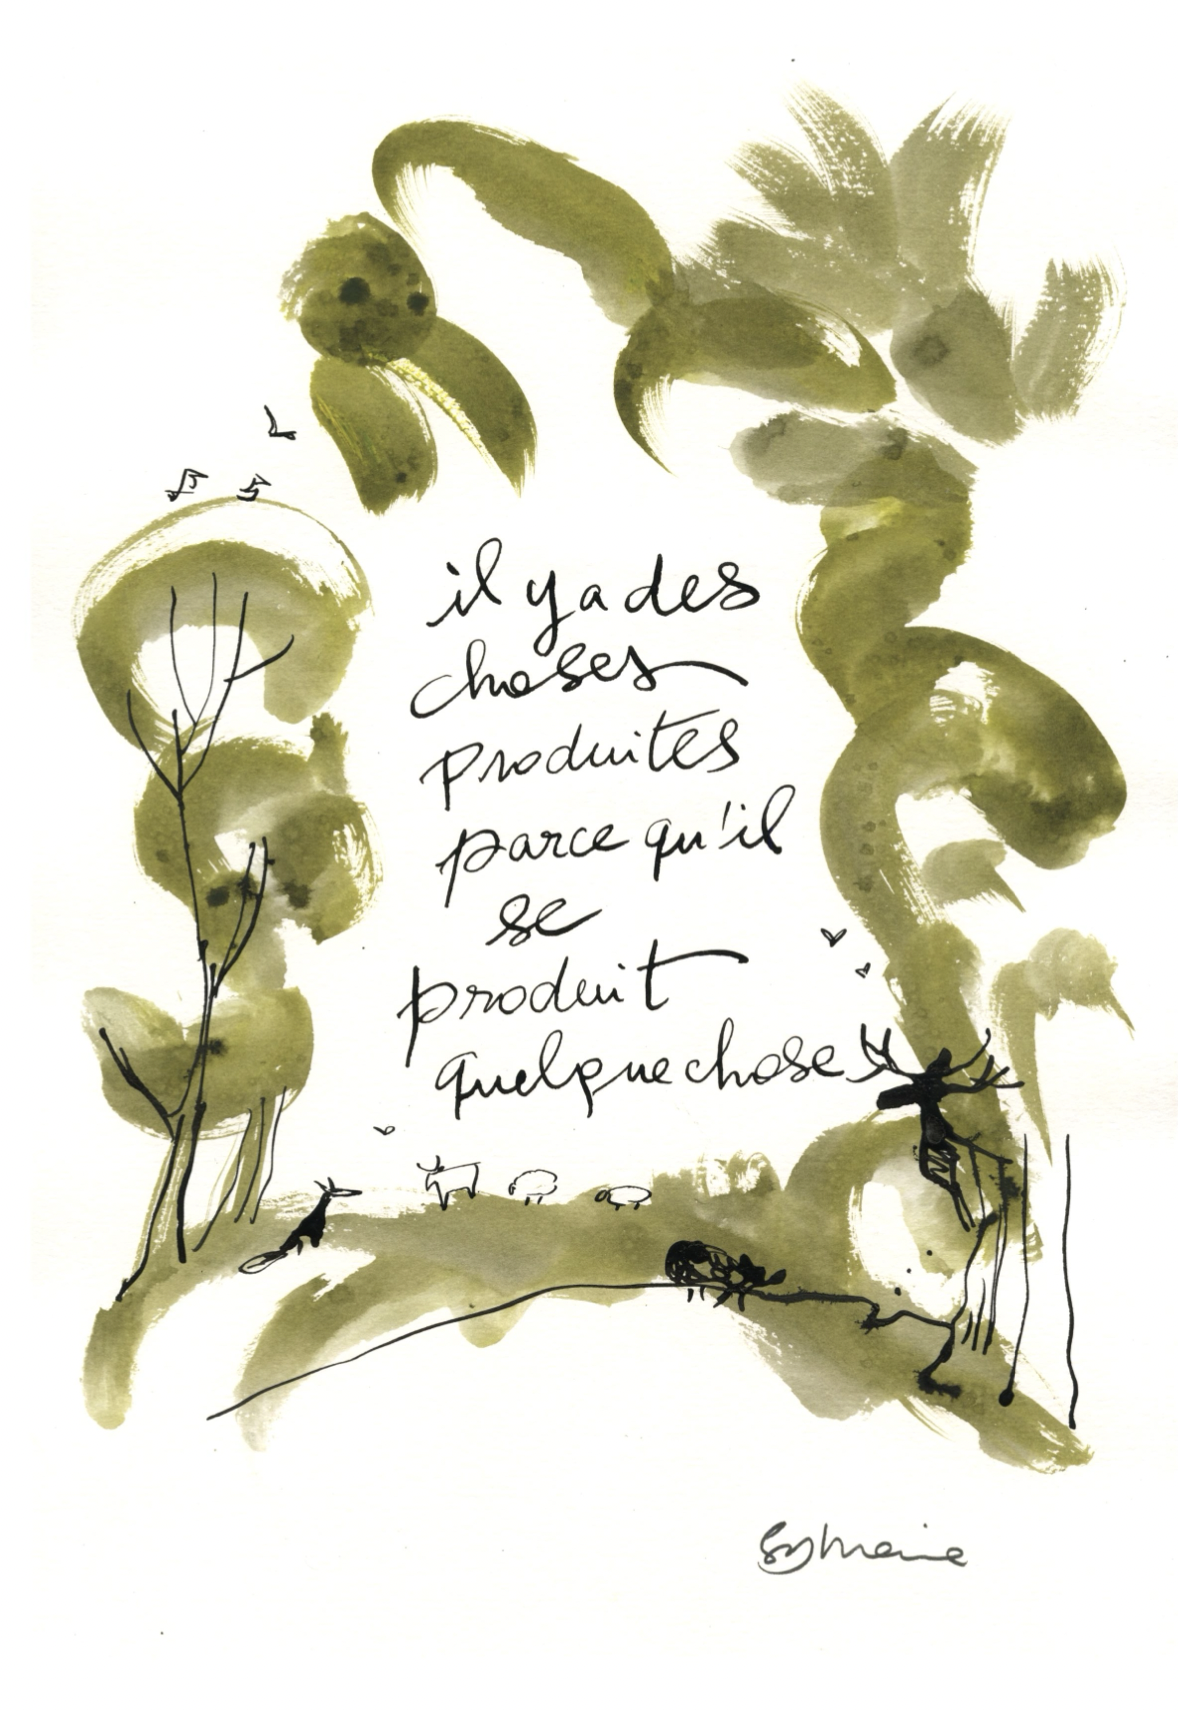 il y a des
choses
produites
parce qu'il
se
produit
quelque chose
Sylvaine